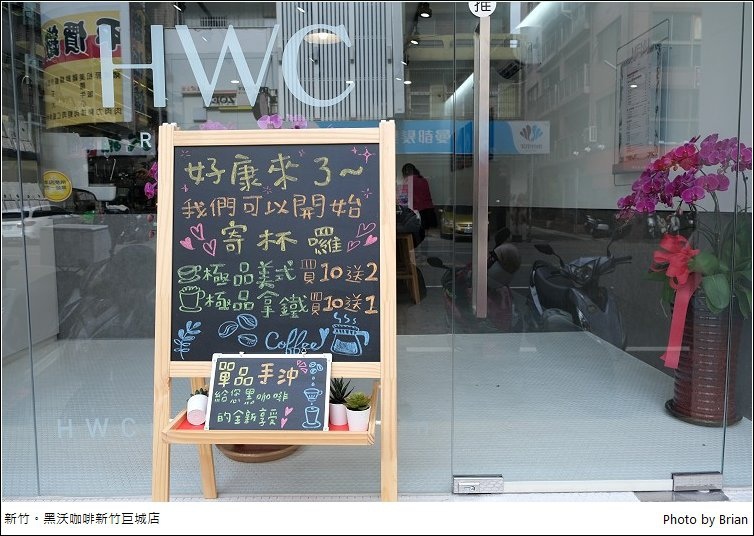 推
平價
HWC
R
好康來了~
我們可以開始
寄杯囉
極品美式買10送2
極品拿鐵買10送1
Coffee
單品手沖
給您黑咖啡
的全新享受
HWC
新竹。黑沃咖啡新竹巨城店
Photo by Brian